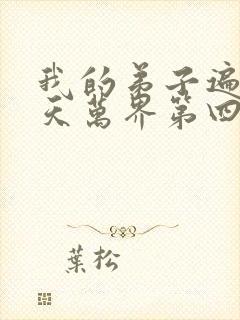 我的弟子遍
天萬界第四
葉松